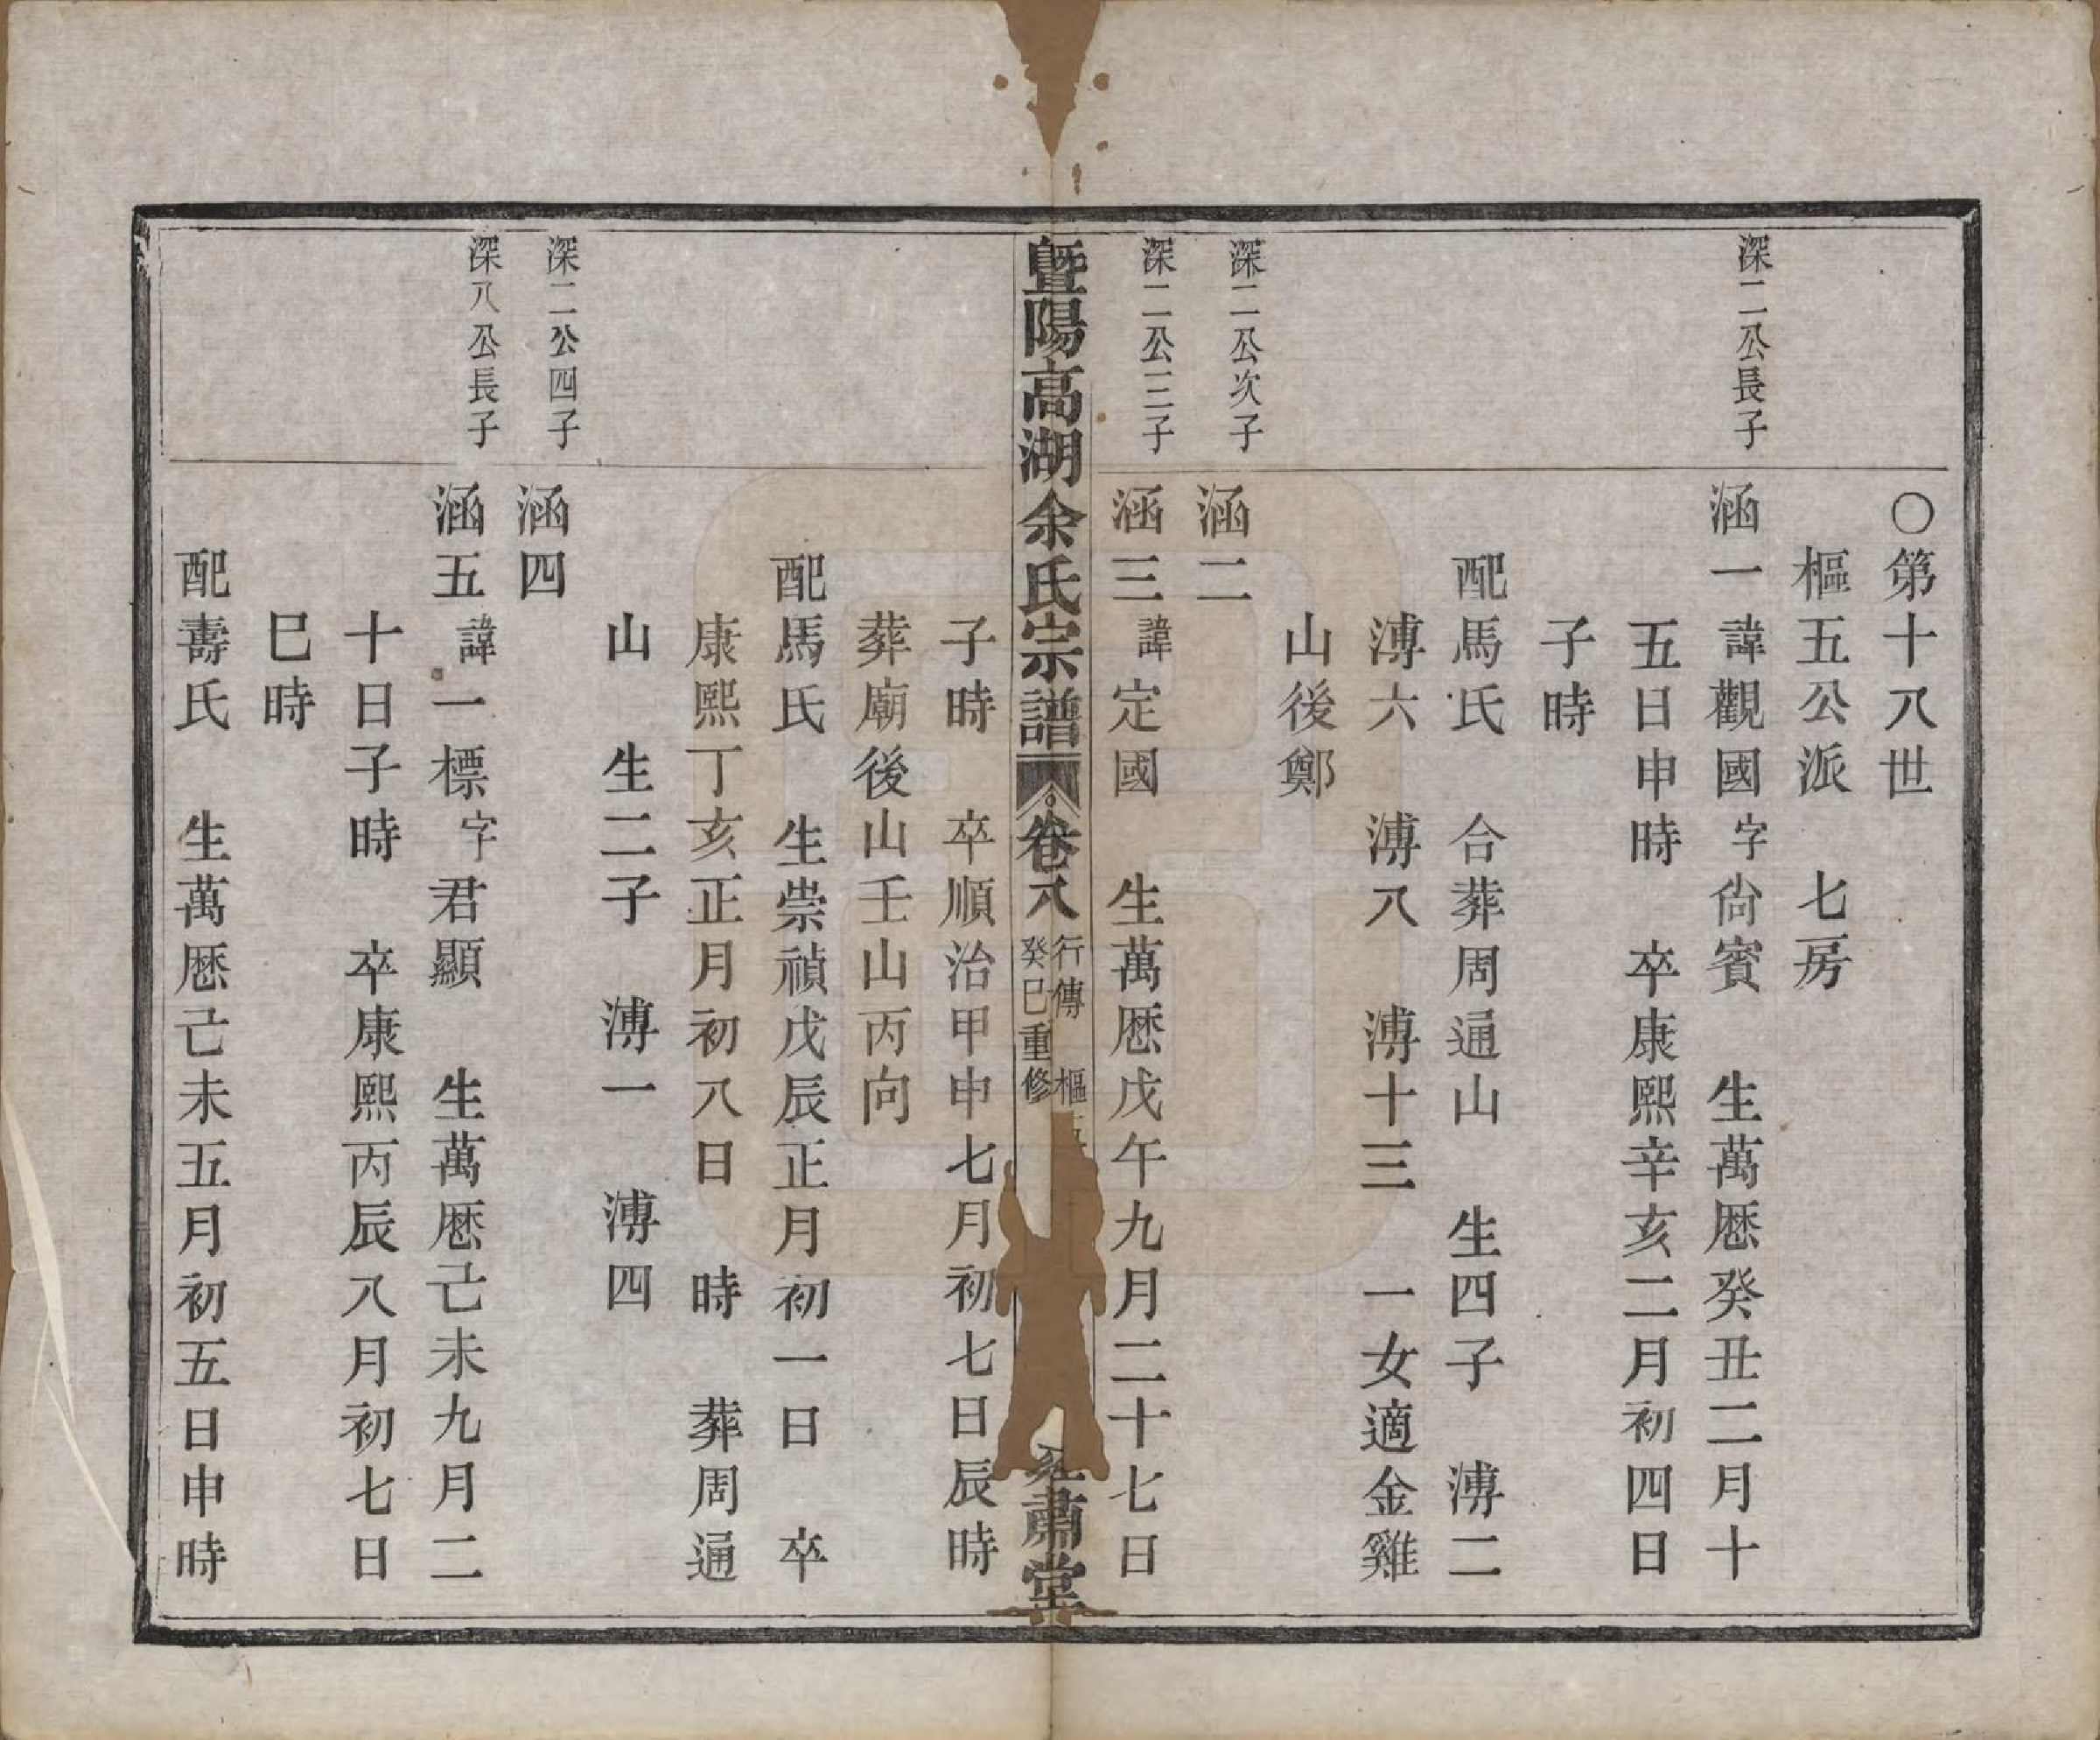 ○第十八世
樞五公派　七房
深二公長子
涵一諱觀國字尙賓　生萬厯癸丑二月十
五日申時　卒康熙辛亥二月初四日
子時
配馬氏　合葬周通山　生四子　溥二
溥六　溥八　溥十三　一女適金雞
山後鄭
深二公次子
涵二
深二公三子
涵三諱定國　生萬厯戊午九月二十七日
曁陽高湖余氏宗譜
卷八
行傳　樞
癸巳重修
肅堂
子時　卒順治甲申七月初七日辰時
葬廟後山壬山丙向
配馬氏　生崇禎戊辰正月初一日　卒
康熙丁亥正月初八日　時　葬周通
山　生二子　溥一　溥四
深二公四子
涵四
深八公長子
涵五諱一標字君顯　生萬厯己未九月二
十日子時　卒康熙丙辰八月初七日
巳時
配壽氏　生萬厯己未五月初五日申時